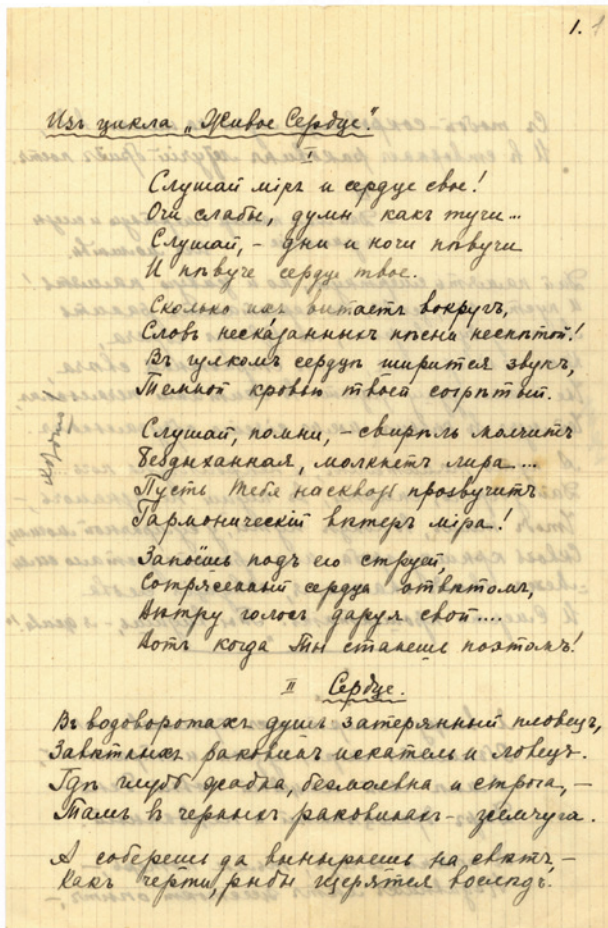 1. 1
Изъ цикла „Живое Сердце".
I
Слушай мiръ и сердце свое!
Очи слабы, думы какъ тучи...
Слушай, – дни и ночи пѣвучи
И пѣвуче сердце твое.
Сколько ихъ витаетъ вокругъ,
Словъ несказанныхъ пѣсни неспѣтой!
Въ гулкомъ сердцѣ ширится звукъ,
Темной кровью твоей согрѣтый.
Слушай, помни, – свирѣль молчитъ
Бездыханная, молкнетъ лира...
Пусть Тебя насквозь прозвучитъ
Гармоническiй вѣтеръ мiра!
Запоёшь подъ его струей,
Сотрясенный сердца отвѣтомъ,
Вѣтру голосъ даруя свой....
Вотъ когда Ты станешь поэтомъ!
II Сердце.
Въ водоворотахъ душъ затерянный пловецъ,
Завѣтныхъ раковинъ искатель и ловецъ.
Гдѣ глубь жадна, безмолвна и строга, –
Тамъ въ черныхъ раковинахъ – жемчуга.
А соберешь да вынырнешь на свѣтъ, –
Какъ черти, рыбы щерятся вослѣдъ.